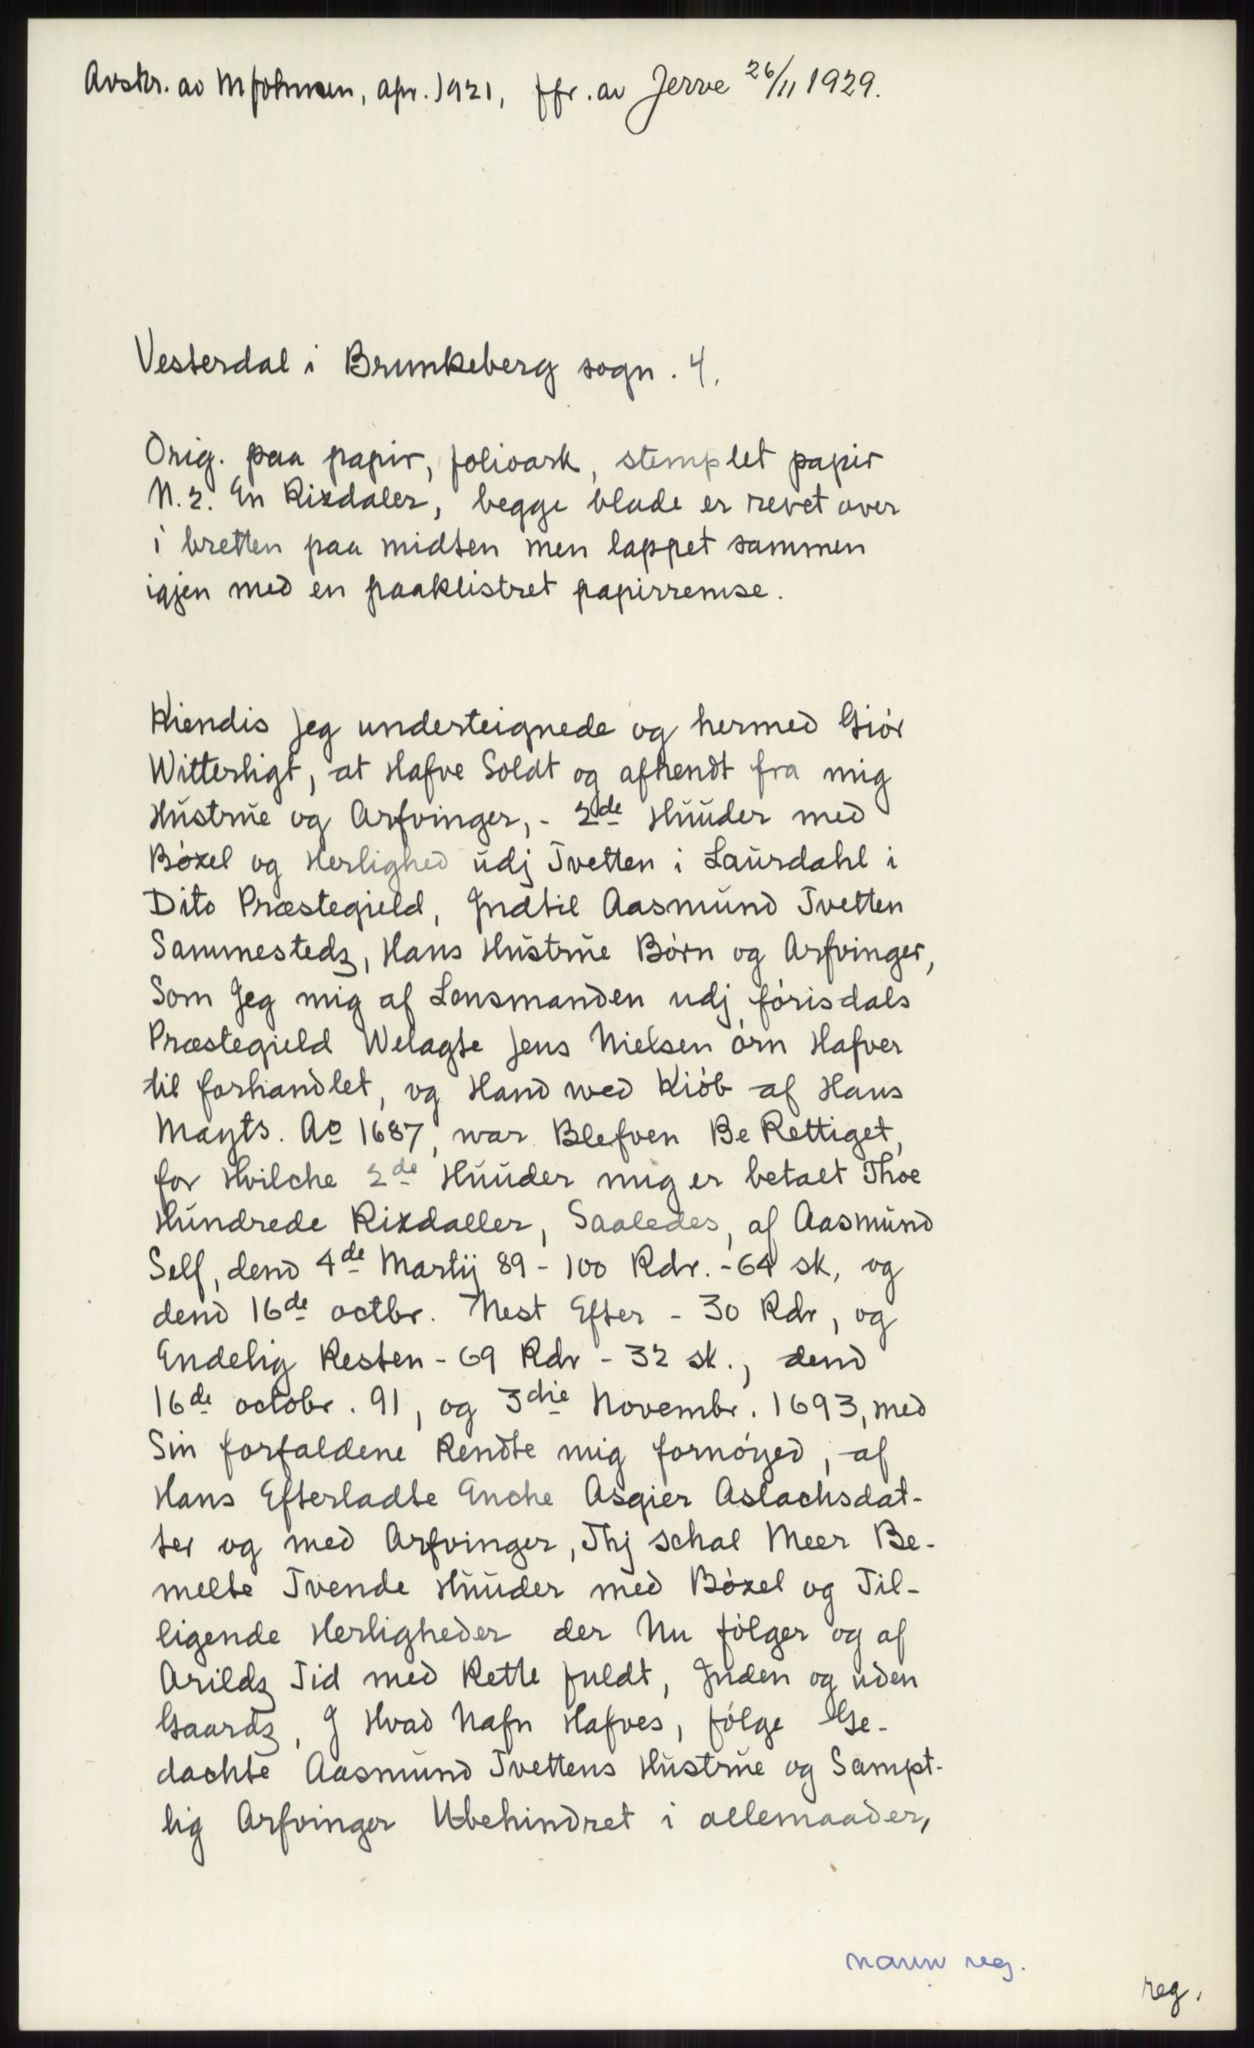 Avskr. av M Johnsen, apr. 1921, jfr. av Jerve 26/11 1929.
Vesterdal i Brunkeberg sogn. 4.
Orig. paa papir, folioark, stemplet papir
N. 2. En Rixdaler, begge blade er revet over
i bretten paa midten men lappet sammen
igjen med en paaklistret papirremse.
Kiendis Jeg undsteignede og hermed Giør
Witterligt, at Hafve Soldt og afhendt fra mig
Hustrue og Arfvinger, - 2de Huuder med
Bóxel og Herlighed udj Tvetten i Laurdahl i
Dito Præstegield, Indtil Aasmund Tvetten
Sammestedz, Hans Hustrue Børn og Arfvinger,
Som Jeg mig af Lensmanden udj førisdals
Præstegield Welagte Jens Nielsen ørn Hafver
til forhandlet, og Hand wed Kiøb af Hans
Mayts. Ao 1687, war Blefven Be Rettiget,
for Hvilche 2de Huuder mig er betalt Thoe
Hundrede Rixdaller, Saaledes, af Aasmund
Self, dend 4de Martij 89 - 100 Rdr. - 64 sk, og
dend 16de octbr. Nest Efter - 30 Rdr, og
Endelig Resten - 69 Rdr - 32 sk., dend
16de octobr. 91, og 3die Novembr. 1693, med
Sin forfaldene Rendte mig fornøyed, af
Hans Efterladte Enche Asgier Aslachsdat-
ter og med Arfvinger, Thj schal Meer Be-
melte Tvende Huuder med Bóxel og Til-
ligende Herligheder der Nu følger og af
Arildz Tid med Rette fuldt, Inden og uden
Gaardz, I Hvad Nafn Hafves, følge Ge-
dachte Aasmund Tvettens Hustrue og Sampt-
lig Arfvinger Ubehindret i allemaader,
navn reg.
reg.